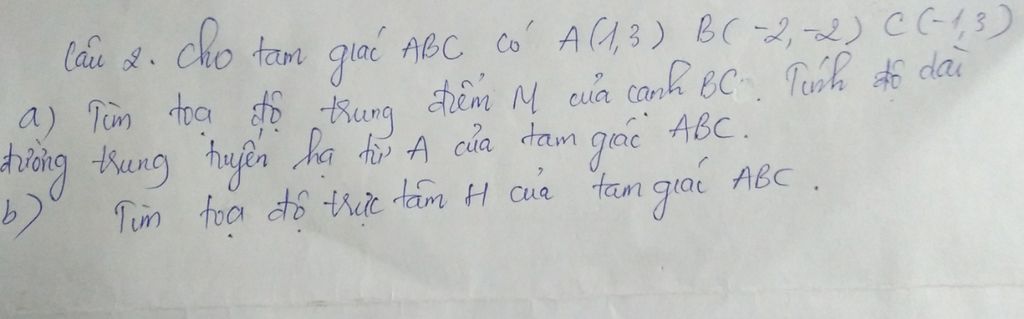 Câu 2. Cho tam giác ABC có A(1,3) B(-2,-2) C(-1,3)
a) Tìm toạ độ trung điểm M của cạnh BC. Tính độ dài
đường trung tuyến hạ từ A của tam giác ABC.
b) Tìm toạ độ trực tâm H của tam giác ABC.